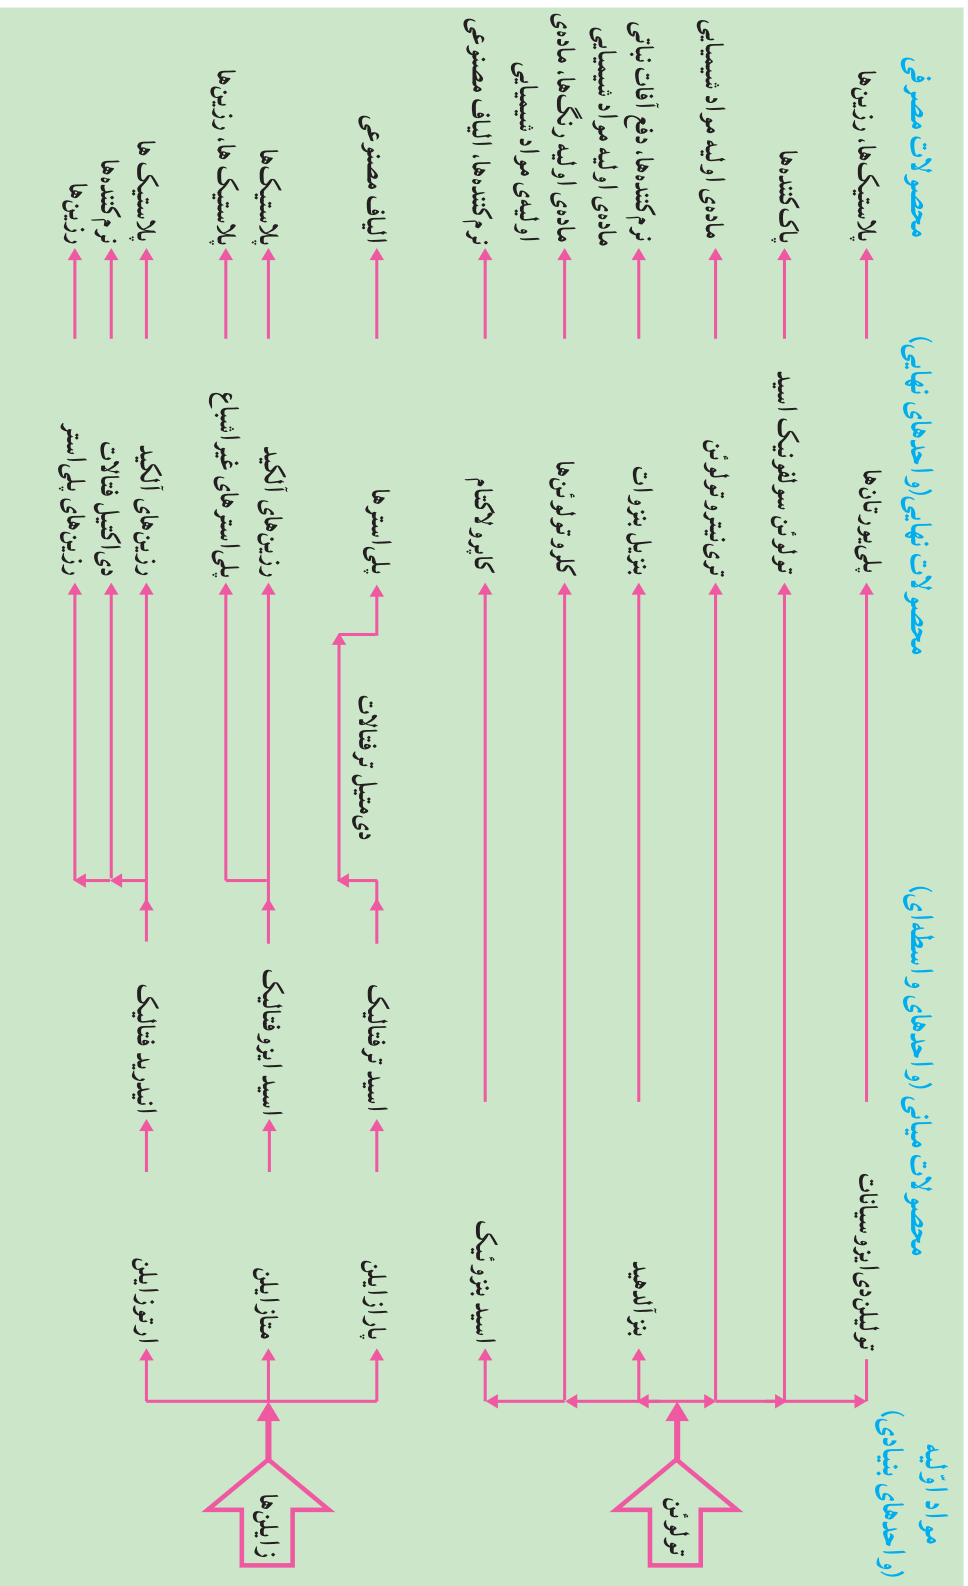 مواد اوّلیه
(واحدهای بنیادی)
محصولات میانی (واحدهای واسطه‌ای)
محصولات نهایی(واحدهای نهایی)
محصولات مصرفی
تولوئن
تولیلن‌دی‌ایزوسیانات
پلی‌یورتان‌ها
پلاستیک‌ها، رزین‌ها
تولوئن سولفونیک اسید
پاک‌کننده‌ها
تری‌نیتروتولوئن
ماده‌ی اولیه مواد شیمیایی
بنزآلدهید
بنزیل بنزوات
نرم‌کننده‌ها، دفع آفات نباتی
ماده‌ی اولیه مواد شیمیایی
کلروتولوئن‌ها
ماده‌ی اولیه رنگ‌ها، ماده‌ی
اولیه‌ی مواد شیمیایی
اسید بنزوئیک
کاپرولاکتام
نرم‌کننده‌ها، الیاف مصنوعی
زایلن‌ها
پارازایلن
اسید ترفتالیک
دی‌متیل ترفتالات
پلی‌استرها
الیاف مصنوعی
متازایلن
اسید ایزوفتالیک
رزین‌های آلکید
پلاستیک‌ها
پلی‌استرهای غیراشباع
پلاستیک‌ها، رزین‌ها
ارتوزایلن
انیدرید فتالیک
رزین‌های آلکید
پلاستیک‌ها
دی‌اکتیل فتالات
نرم‌کننده‌ها
رزین‌های پلی‌استر
رزین‌ها